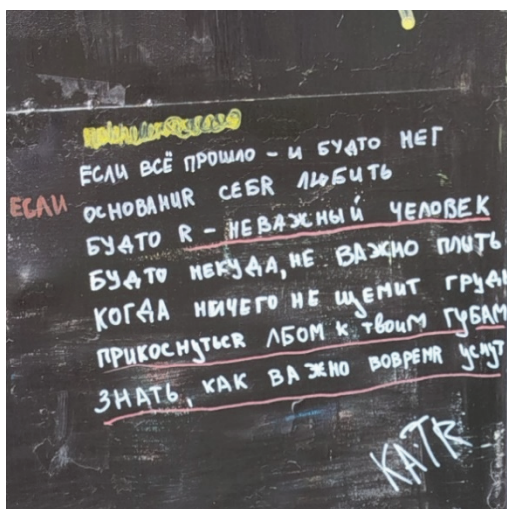 ЕСЛИ ВСЁ ПРОШЛО - И БУДТО НЕТ
ЕСЛИ
ОСНОВАНИЯ СЕБЯ ЛЮБИТЬ
БУДТО Я - НЕВАЖНЫЙ ЧЕЛОВЕК
БУДТО НЕКУДА, НЕ ВАЖНО ПЛЫТЬ
КОГДА НИЧЕГО НЕ ЩЕМИТ ГРУДЬ
ПРИКОСНУТЬСЯ ЛБОМ К ТВОИМ ГУБАМ
ЗНАТЬ, КАК ВАЖНО ВОВРЕМЯ УСНУТ
КАТЯ